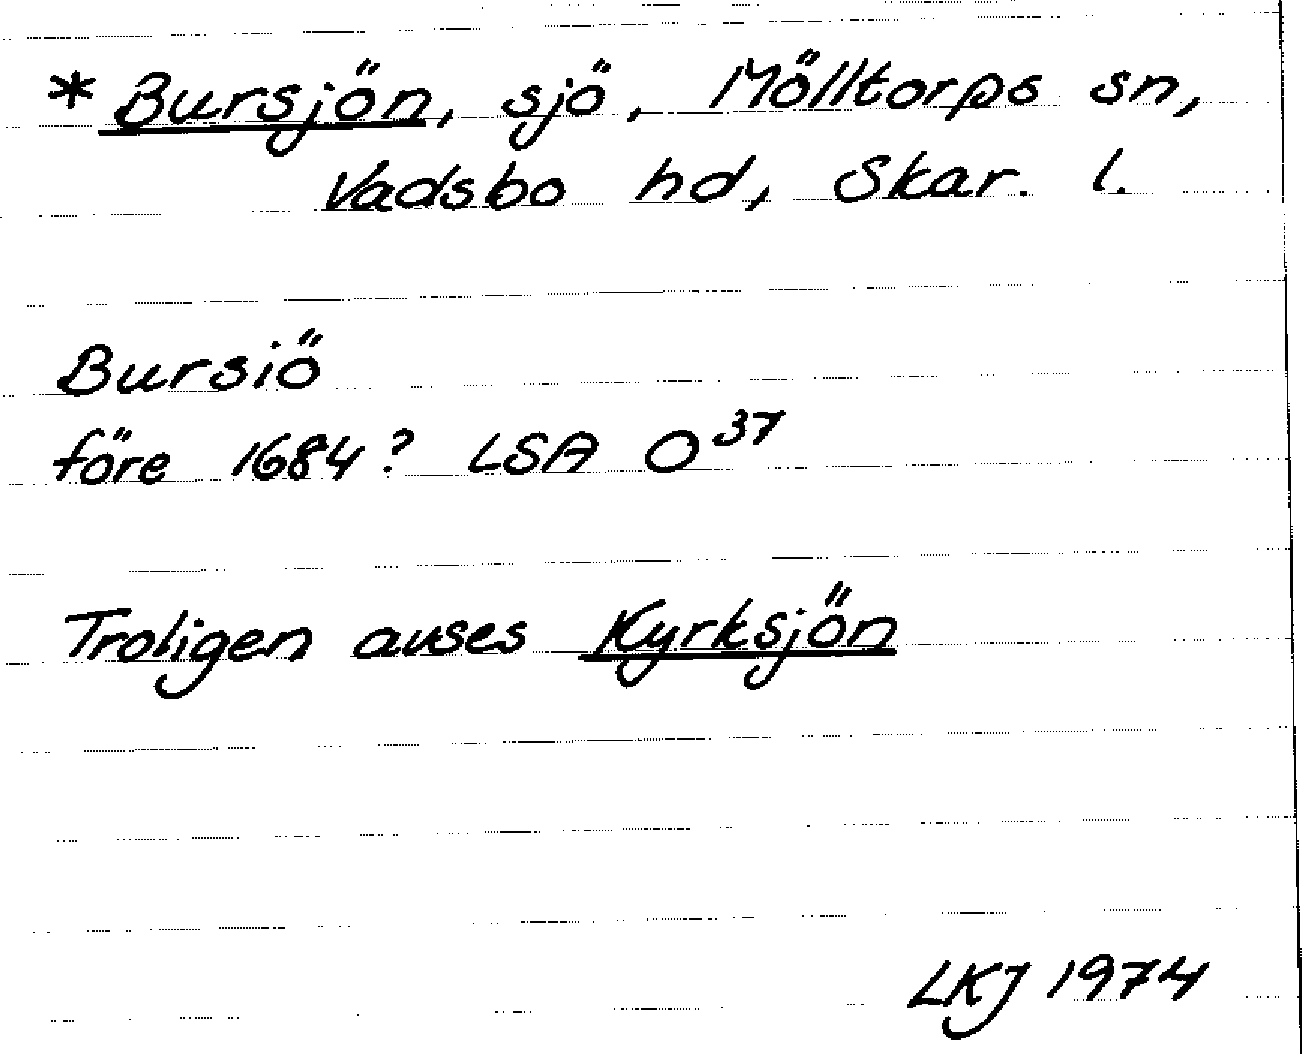 * Bursjön, sjö, Mölltorps sn,
Vadsbo hd, Skar. l.
Bursiö
före 1684? LSA O³⁷
Troligen avses Kyrksjön
LKJ 1974